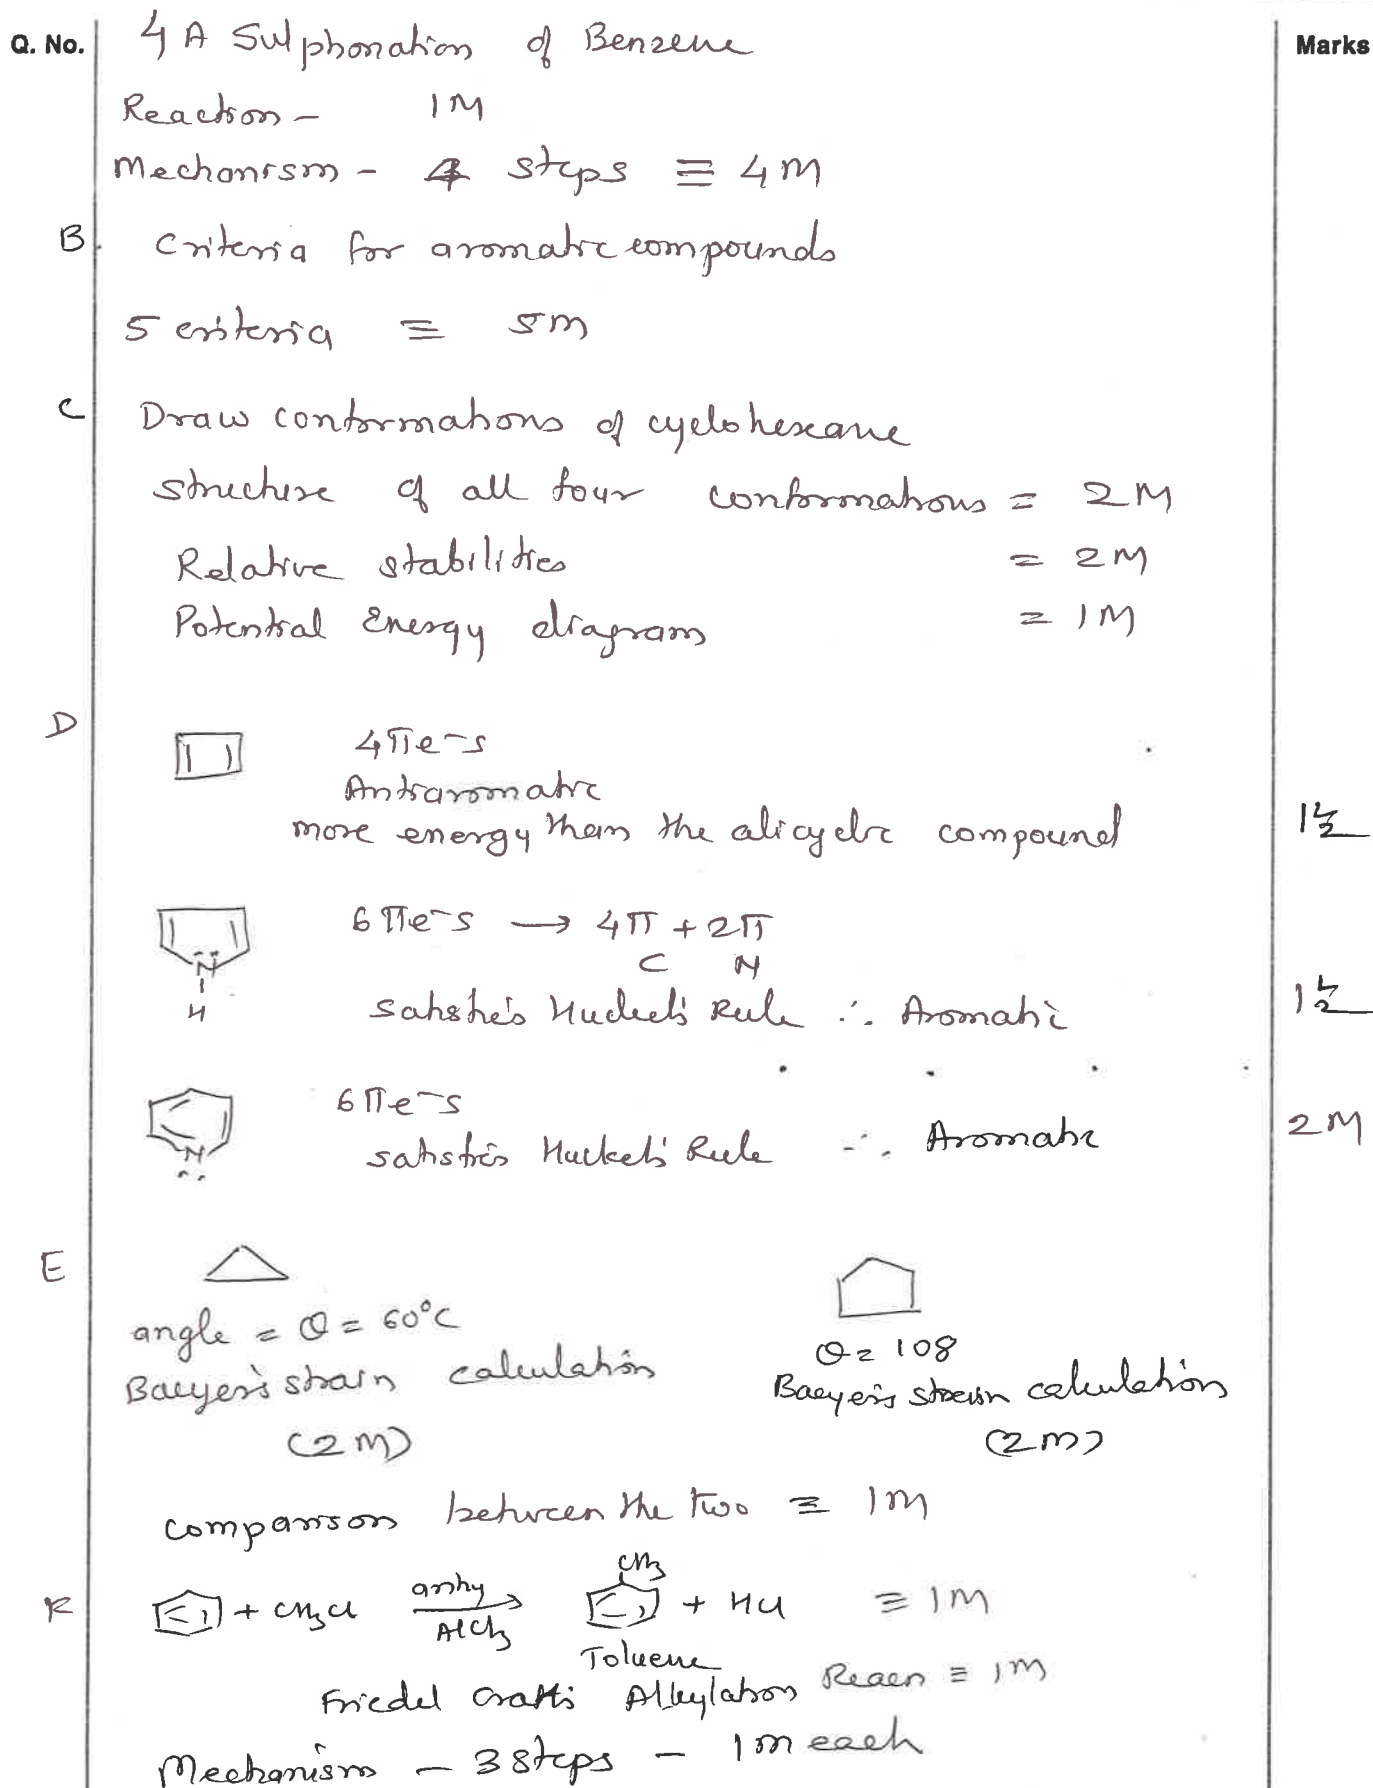 Q. No. 4 A Sulphonation of Benzene Marks
Reaction - 1M
Mechanism - 4 steps ≡ 4M
B. Criteria for aromatic compounds
5 criteria ≡ 5M
C Draw conformations of cyclohexane
structure of all four conformations = 2M
Relative stabilities = 2M
Potential Energy diagram = 1M
D 4πe-s
Antiaromatic
more energy than the alicyclic compound 1½
6πe-s → 4π + 2π
C N
N
H
satisfies Huckel's Rule ∴ Aromatic 1½
6πe-s
N
satisfies Huckel's Rule ∴ Aromatic 2M
E
angle = θ = 60°C
θ = 108
Baeyer's strain calculation
Baeyer's strain calculation
(2M)
(2M)
comparison between the two ≡ 1M
CH3
+ CH3Cl anhy AlCl3 → + HCl ≡ 1M
Toluene
Friedel Crafts Alkylation Reacn ≡ 1M
Mechanism - 3 steps - 1m each